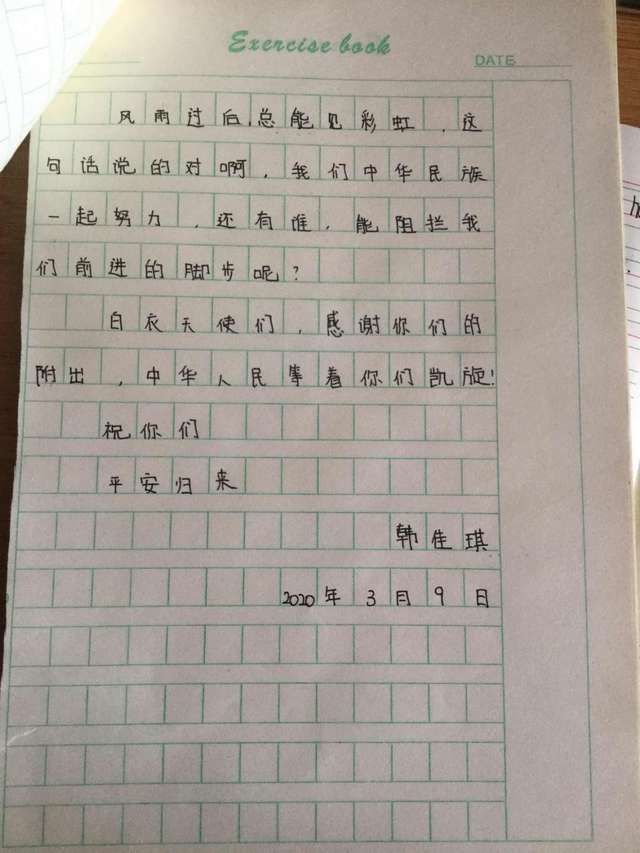 Exercise book
DATE
风雨过后,总能见彩虹,这
句话说的对啊,我们中华民族
一起努力,还有谁,能阻拦我
们前进的脚步呢?
白衣天使们,感谢你们的
附出,中华人民等着你们凯旋!
祝你们
平安归来
韩佳琪
2020年3月9日